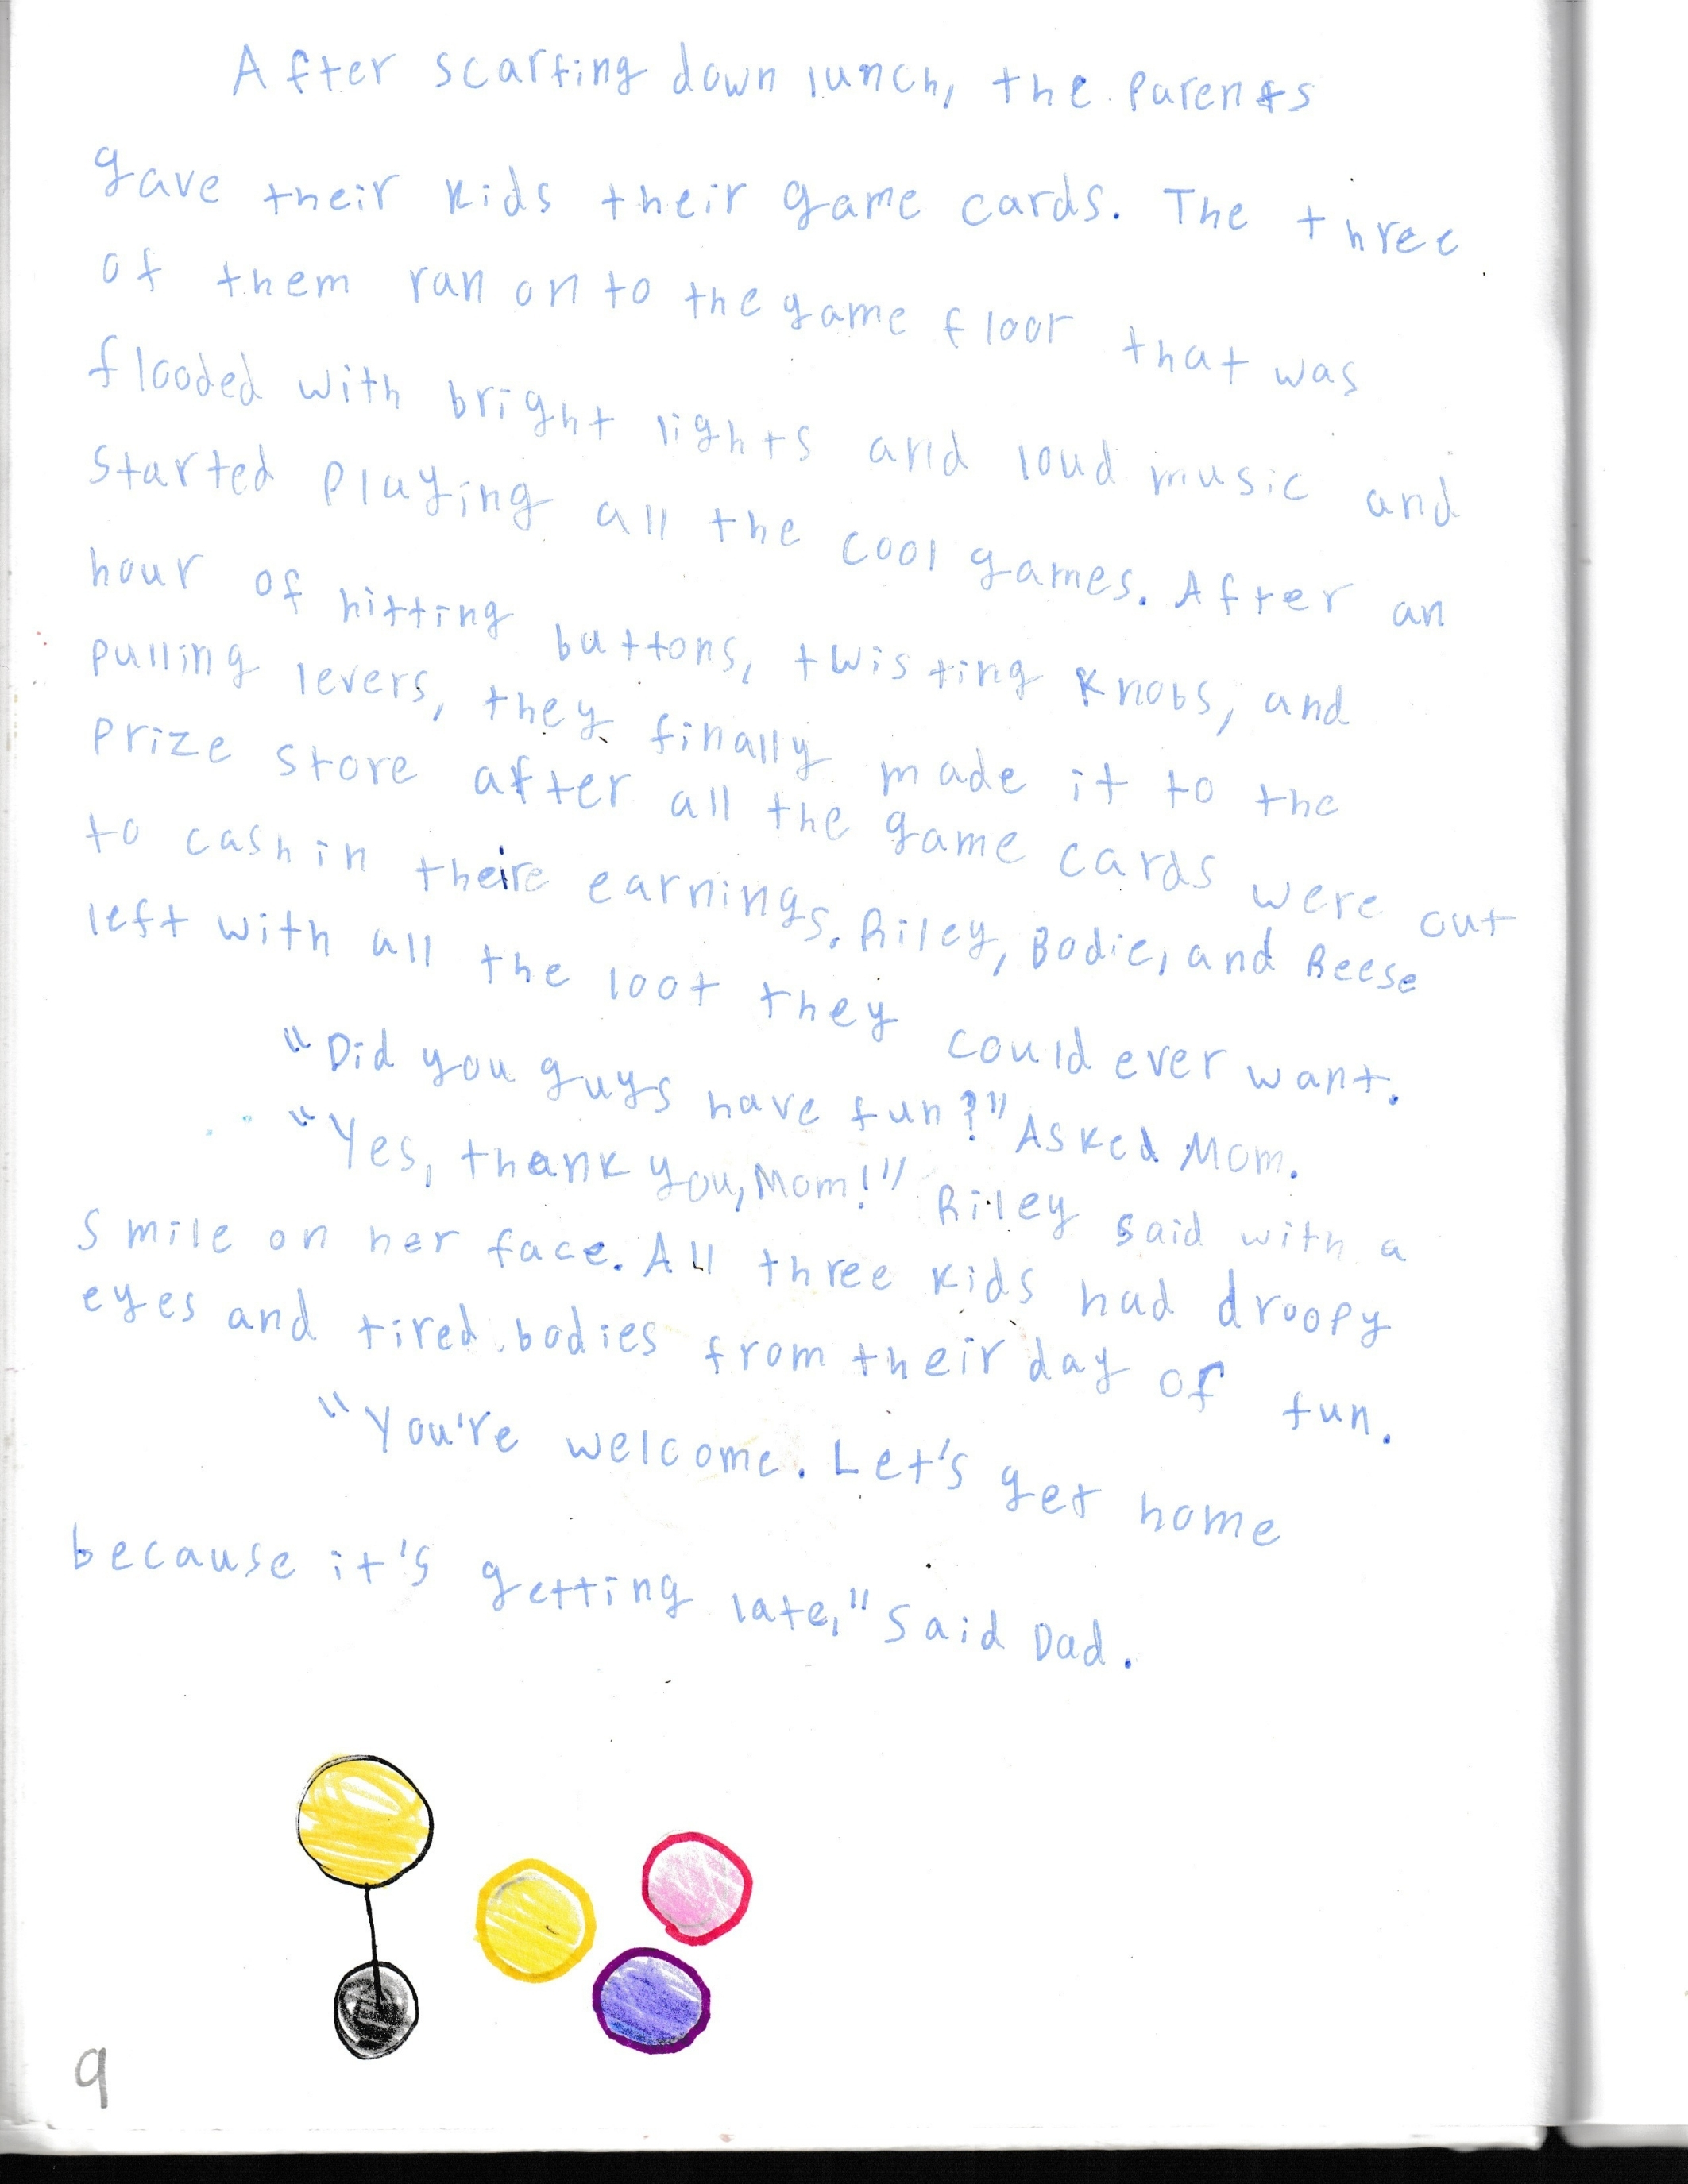 After scarfing down lunch, the parents
gave their kids their game cards. The three
of them ran on to the game floor that was
flooded with bright lights and loud music and
started playing all the cool games. After an
hour of hitting buttons, twisting knobs, and
pulling levers, they finally made it to the
prize store after all the game cards were out
to cash in theire earnings. Riley, Bodie, and Reese
left with all the loot they could ever want.
"Did you guys have fun?" Asked Mom.
"Yes, thank you, Mom!" Riley said with a
smile on her face. All three kids had droopy
eyes and tired bodies from their day of fun.
"You're welcome. Let's get home
because it's getting late," Said Dad.
9